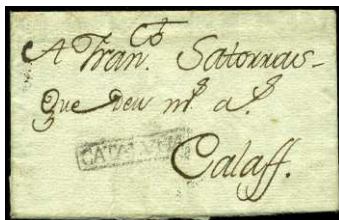 A Fran.co Satorras
Que Deu m.s a.s
CATALUÑA
Calaff.